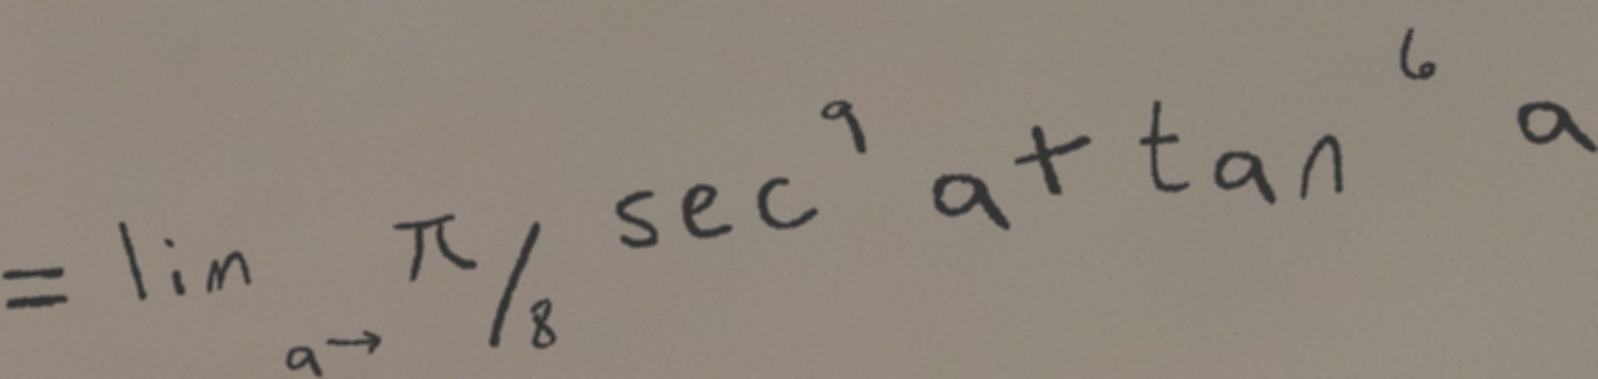 = lim a→ π/8 sec^9 a + tan^6 a